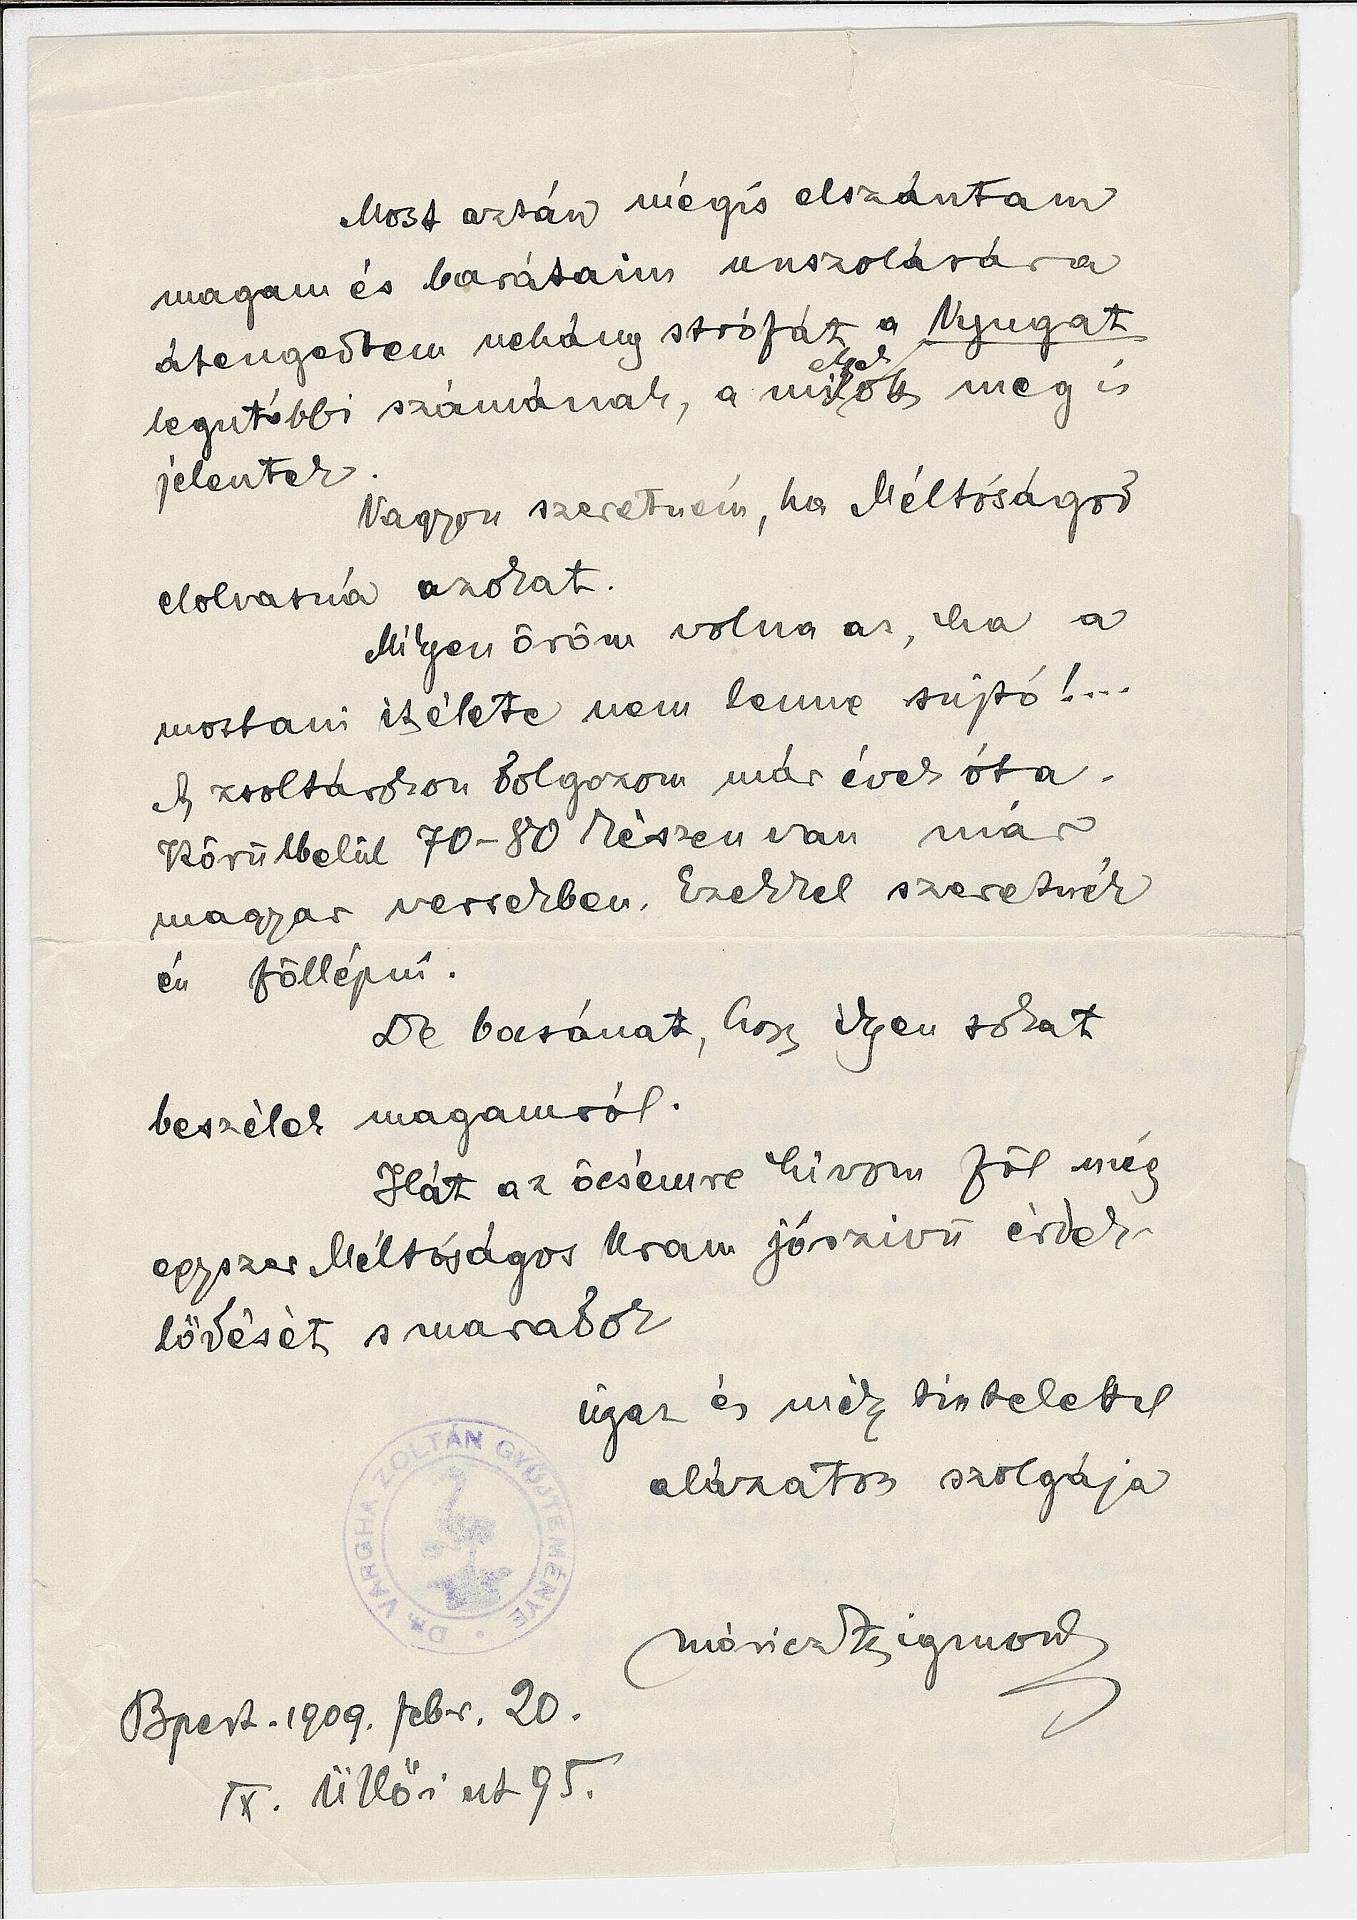 Most aztán mégis elszántam
magam és barátaim unszolására
átengedtem nehány strófát a Nyugat
legutóbbi számának, a melyek meg is
jelentek.
Nagyon szeretném, ha Méltóságod
elolvasná azokat.
Milyen öröm volna az, ha a
mostani itélete nem lenne sujtó!...
A zsoltárokon dolgozom már évek óta.
Körülbelül 70-80 készen van már
magyar versekben. Ezekkel szeretnék
én föllépni.
De bocsánat, hogy ilyen sokat
beszélek magamról.
Hát az öcsémre hivom föl még
egyszer Méltóságos Uram jószivü érdek-
lödését s maradok
igaz és mély tisztelettel
alázatos szolgája
Móricz Zsigmond
Bpest. 1909. febr. 20.
IX. Üllői ut 95.
Dr. VARGHA ZOLTÁN GYŰJTEMÉNYE